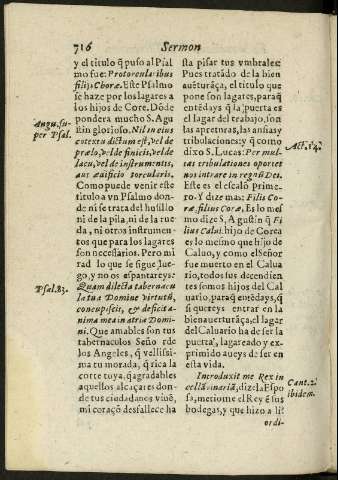 716
Sermon
y el titulo q̃ puso al Psal
mo fue: Protorcularibus
filijs Choræ. Este Psalmo
se haze por los lagares a
los hijos de Core. Dõde
pondera mucho S. Agu
stin glorioso. Nil in eius
cotextu dictum est, vel de
prælo, vel de finicis, vel de
lacu, vel de instrumentis,
aut ædificio torcularis.
Como puede venir este
titulo a vn Psalmo don-
de ni se trata del husillo
ni de la pila, ni de la rue
da, ni otros instrumen-
tos que para los lagares
son necessarios. Pero mi
rad lo que se sigue lue-
go, y no os espantareys:
Quam dilecta tabernacu
la tua Domine virtutũ,
concupiscit, & deficit a-
nima mea in atria Domi-
ni. Que amables son tus
tabernaculos Señor de
los Angeles, q̃ vellissi-
ma tu morada, q̃ rica la
corte tuya, q̃ agradables
aquellos alcaçares don-
de tus ciudadanos viuẽ,
mi coraçõ desfallece ha
Augu. su-
per Psal.
Psal. 83.
sta pisar tus vmbrales:
Pues tratãdo de la bien
auẽturãça, el titulo que
pone son lagares, paraq̃
entẽdays q̃ la puerta es
el lagar del trabajo, son
las apreturas, las ansias y
tribulaciones: y q̃ como
dixo S. Lucas: Per mul-
tas tribulationes oportet
nos intrare in regnũ Dei.
Este es el escalõ prime-
ro. Y dize mas: Filijs Co-
ræ, filius Coræ, Es lo mes
mo dize S. Agustin q̃ Fi
lius Calui. hijo de Corea
es lo mesmo que hijo de
Caluo, y como el Señor
fue muerto en el Calua
rio, todos sus decendien
tes somos hijos del Cal
uario, paraq̃ entẽdays, q̃
si quereys entrar en la
bienauenturãça, el lagar
del Caluario ha de ser la
puerta, lagareado y ex-
primido aueys de ser en
esta vida.
Introduxit me Rex in
cellã vinariã, dize la Espo
sa, metiome el Rey ẽ sus
bodegas, y que hizo a lli?
ordi-
Act. 14.
Cant. 2.
ibidem.